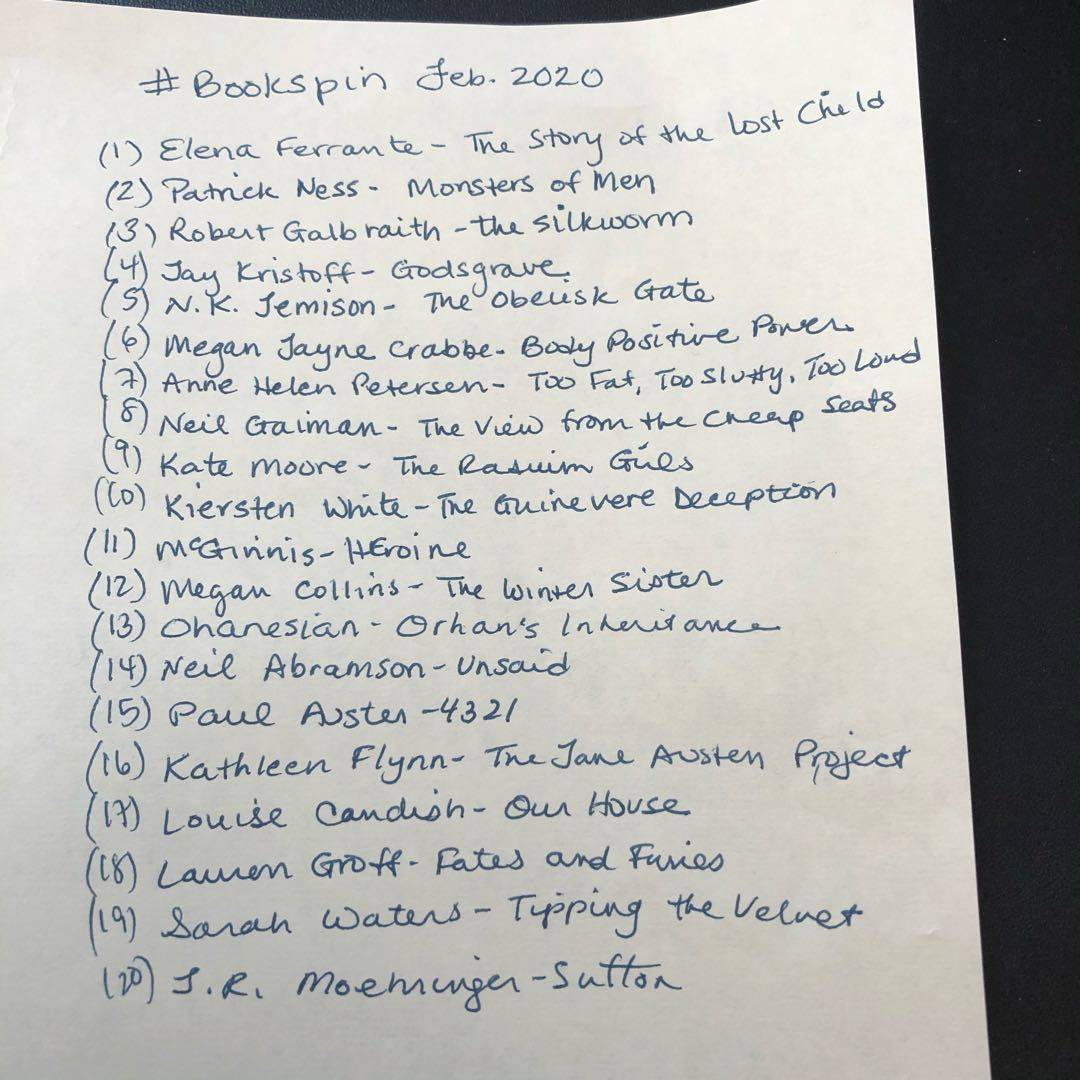 # Bookspin Feb. 2020
(1) Elena Ferrante - The Story of the Lost Child
(2) Patrick Ness - Monsters of Men
(3) Robert Galbraith - the Silkworm
(4) Jay Kristoff - Godsgrave
(5) N.K. Jemison - The Obelisk Gate
(6) Megan Jayne Crabbe - Body Positive Power
(7) Anne Helen Petersen - Too Fat, Too Slutty, Too Loud
(8) Neil Gaiman - The View from the Cheap Seats
(9) Kate Moore - The Radium Girls
(10) Kiersten White - The Guinevere Deception
(11) McGinnis - HEroine
(12) Megan Collins - The Winter Sister
(13) Ohanesian - Orhan's Inheritance
(14) Neil Abramson - Unsaid
(15) Paul Auster - 4321
(16) Kathleen Flynn - The Jane Austen Project
(17) Louise Candish - Our House
(18) Lauren Groff - Fates and Furies
(19) Sarah Waters - Tipping the Velvet
(20) J.R. Moehringer - Sutton